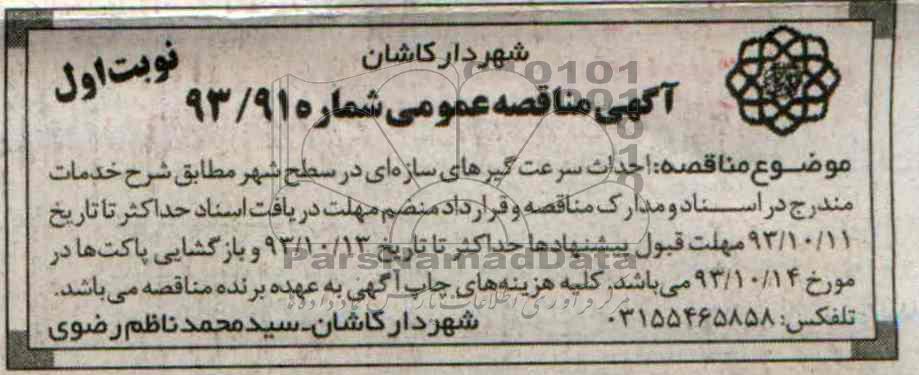 شهردار کاشان
نوبت اول
آگهی مناقصه عمومی شماره ۹۳/۹۱
موضوع مناقصه: احداث سرعت گیرهای سازه‌ای در سطح شهر مطابق شرح خدمات
مندرج در اسناد و مدارک مناقصه و قرارداد منضم مهلت دریافت اسناد حداکثر تا تاریخ
۹۳/۱۰/۱۱ مهلت قبول پیشنهادها حداکثر تا تاریخ ۹۳/۱۰/۱۳ و بازگشایی پاکت‌ها در
مورخ ۹۳/۱۰/۱۴ می‌باشد. کلیه هزینه‌های چاپ آگهی به عهده برنده مناقصه می‌باشد.
تلفکس: ۰۳۱۵۵۴۶۵۸۵۸
شهردار کاشان-سیدمحمدناظم‌رضوی
ParsNamadData